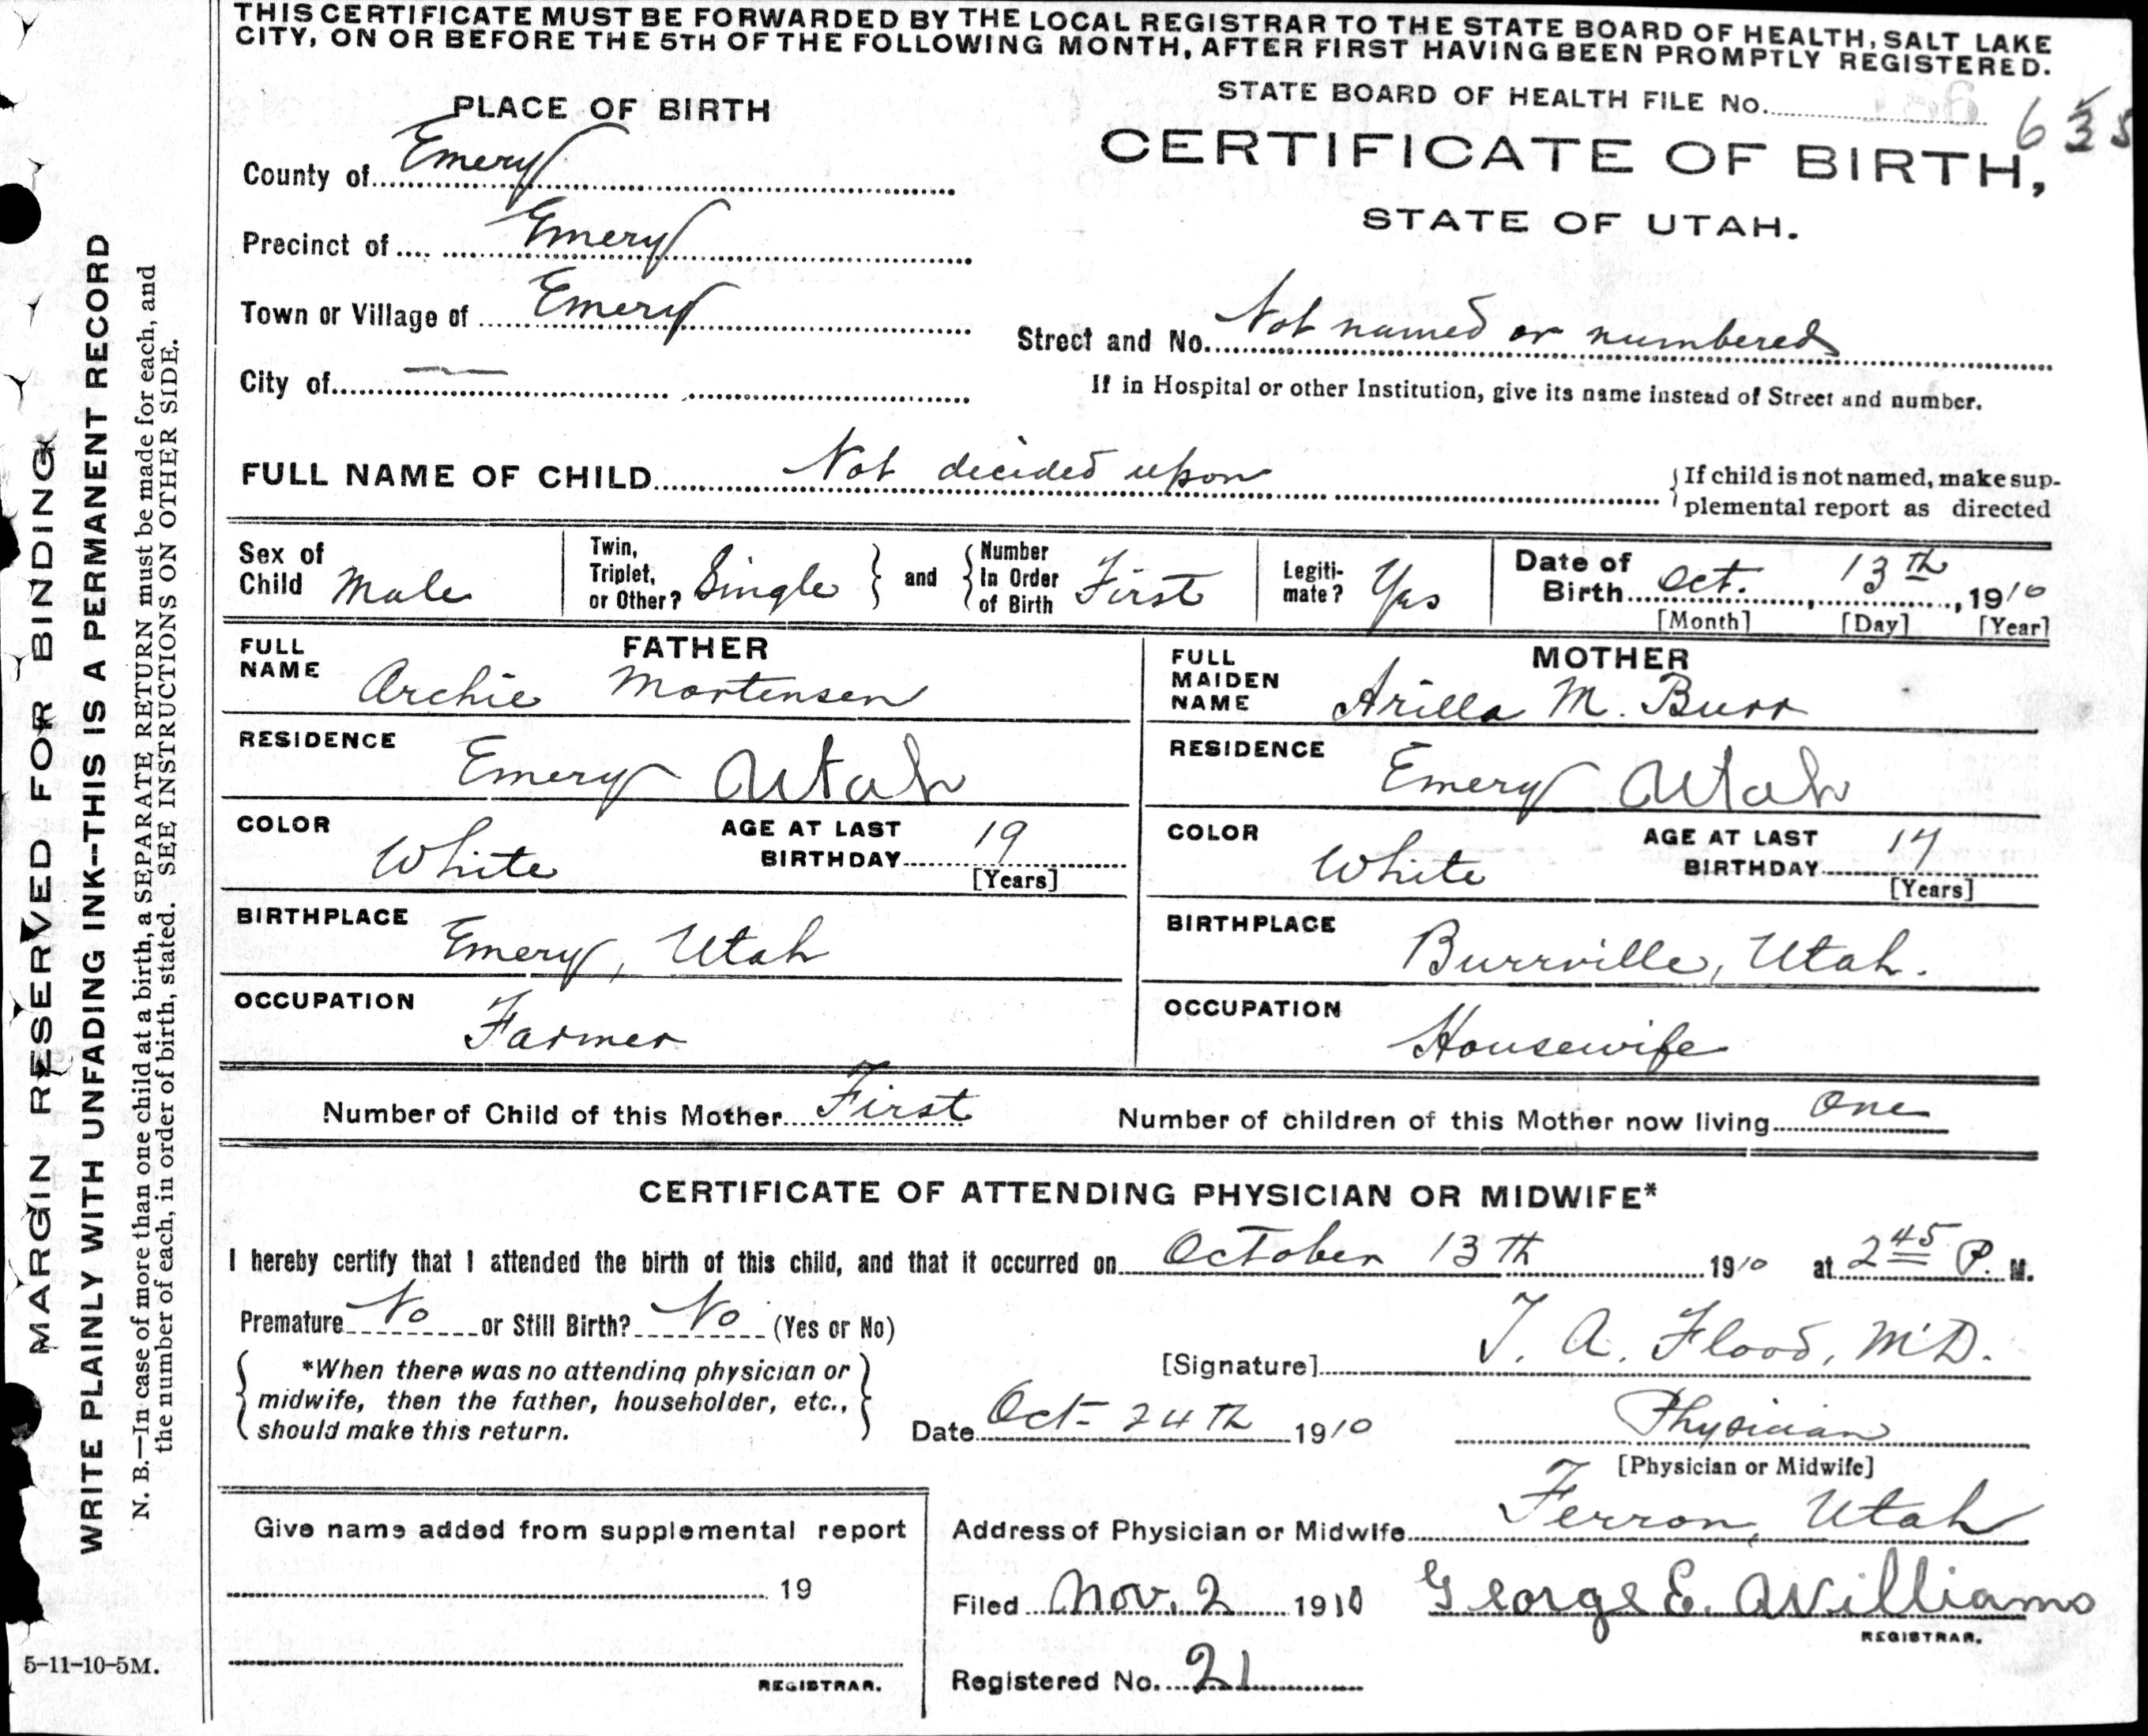 THIS CERTIFICATE MUST BE FORWARDED BY THE LOCAL REGISTRAR TO THE STATE BOARD OF HEALTH, SALT LAKE
CITY, ON OR BEFORE THE 5TH OF THE FOLLOWING MONTH, AFTER FIRST HAVING BEEN PROMPTLY REGISTERED.
STATE BOARD OF HEALTH FILE No.
PLACE OF BIRTH
CERTIFICATE OF BIRTH,
STATE OF UTAH.
County of Emery
Precinct of Emery
Town or Village of Emery
Street and No. Not named or numbered
City of
If in Hospital or other Institution, give its name instead of Street and number.
FULL NAME OF CHILD Not decided upon
If child is not named, make sup-
plemental report as directed
Sex of Child Male
Twin, Triplet, or Other? Single and Number In Order of Birth First
Legiti-mate? Yes
Date of Birth Oct. 13th, 1910
[Month] [Day] [Year]
FATHER
FULL NAME Archie Mortensen
MOTHER
FULL MAIDEN NAME Arilla M. Burr
RESIDENCE Emery Utah
RESIDENCE Emery Utah
COLOR White AGE AT LAST BIRTHDAY 19 [Years]
COLOR White AGE AT LAST BIRTHDAY 17 [Years]
BIRTHPLACE Emery, Utah
BIRTHPLACE Burrville, Utah.
OCCUPATION Farmer
OCCUPATION Housewife
Number of Child of this Mother First Number of children of this Mother now living One
CERTIFICATE OF ATTENDING PHYSICIAN OR MIDWIFE*
I hereby certify that I attended the birth of this child, and that it occurred on October 13th 1910 at 2 45 P. M.
Premature No or Still Birth? No (Yes or No)
*When there was no attending physician or
midwife, then the father, householder, etc.,
should make this return.
[Signature] T. A. Flood, M.D.
Date Oct- 24th 1910
Physician
[Physician or Midwife]
Give name added from supplemental report
19
REGISTRAR.
Address of Physician or Midwife Ferron, Utah
Filed Nov. 2 1910 George E. Williams
REGISTRAR.
Registered No. 21
MARGIN RESERVED FOR BINDING
WRITE PLAINLY WITH UNFADING INK--THIS IS A PERMANENT RECORD
N. B.—In case of more than one child at a birth, a SEPARATE RETURN must be made for each, and
the number of each, in order of birth, stated. SEE INSTRUCTIONS ON OTHER SIDE.
5-11-10-5M.